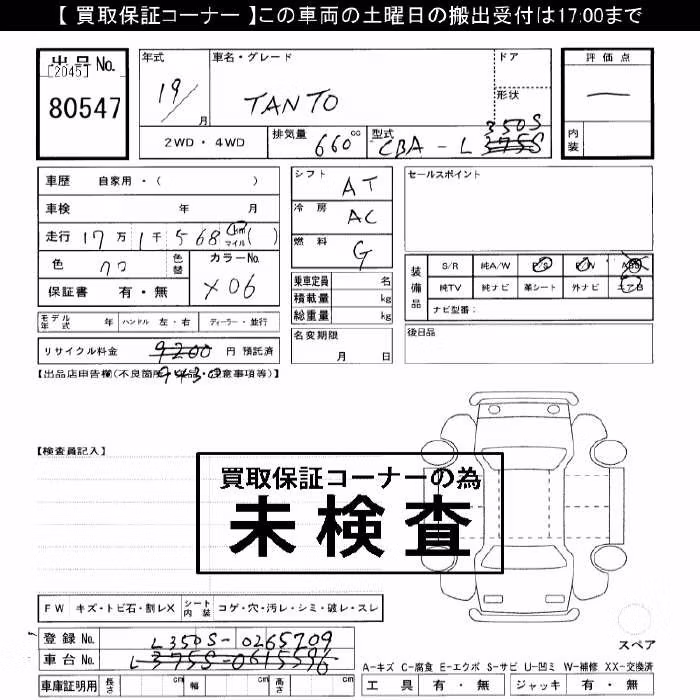 【 買取保証コーナー 】この車両の土曜日の搬出受付は17:00まで
出品No.
[2045]
80547
年式
19/
月
車名・グレード
TANTO
ドア
形状
2WD・4WD
排気量
660
cc
型式
CBA-L 375S
350S
評価点
—
内装
車歴 自家用・( )
車検 年 月
走行 17万1千568 km マイル ( )
色 クロ
色替
カラーNo.
X06
保証書 有・無
シフト
AT
冷房
AC
燃料
G
乗車定員 名
積載量 kg
総重量 kg
名変期限
月 日
セールスポイント
装備品
S/R 純A/W P/S P/W ABS
純TV 純ナビ 革シート 外ナビ エアB
ナビ型番:
後日品
モデル年式 年 ハンドル 左・右 ディーラー・並行
リサイクル料金 9200 円 預託済
9430
【出品店申告欄(不良箇所・欠品・注意事項等)】
【検査員記入】
買取保証コーナーの為
未検査
FW キズ・トビ石・割レX シート内装 コゲ・穴・汚レ・シミ・破レ・スレ
登録 No. L350S-0265709
車台 No. L375S-0615596
車庫証明用 長さ cm 幅 cm 高さ cm
スペア
A-キズ C-腐食 E-エクボ S-サビ U-凹ミ W-補修 XX-交換済
工具 有・無 ジャッキ 有・無